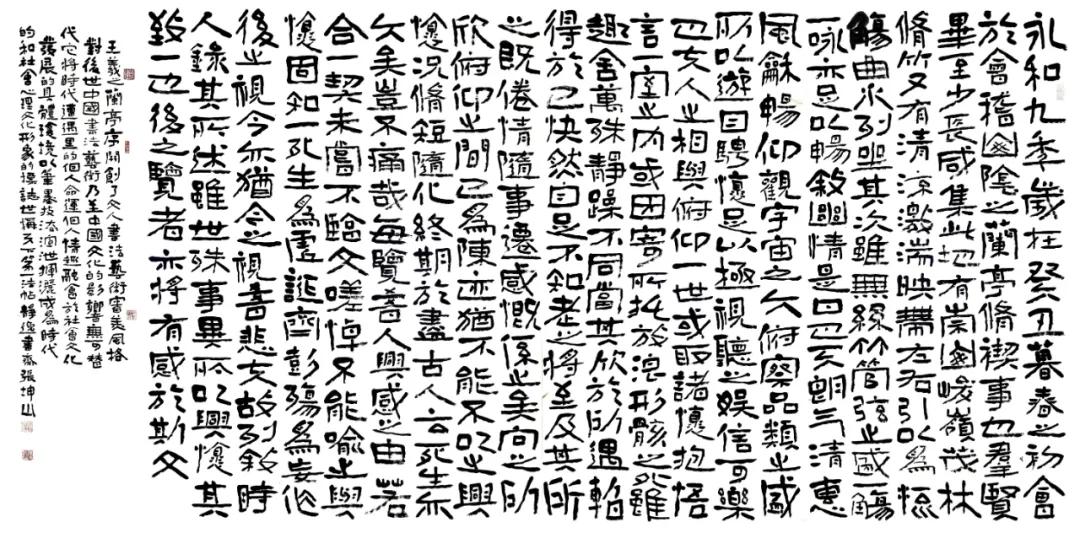 永和九年歲在癸丑暮春之初會
於會稽山陰之蘭亭脩禊事也羣賢
畢至少長咸集此地有崇山峻嶺茂林
脩竹又有清流激湍映帶左右引以為流
觴曲水列坐其次雖無絲竹管弦之盛一觴
一詠亦足以暢敘幽情是日也天朗氣清惠
風龢暢仰觀宇宙之大俯察品類之盛
所以遊目騁懷足以極視聽之娛信可樂
也夫人之相與俯仰一世或取諸懷抱悟
言一室之內或因寄所託放浪形骸之雖
趣舍萬殊靜躁不同當其欣於所遇暫
得於己快然自足不知老之將至及其所
之既倦情隨事遷感慨係之矣向之所
欣俯仰之間已為陳迹猶不能不以之興
懷況脩短隨化終期於盡古人云死生亦
大矣豈不痛哉每覽昔人興感之由若
合一契未嘗不臨文嗟悼不能喻之與
懷固知一死生為虛誕齊彭殤為妄作
後之視今亦猶今之視昔悲夫故列敘時
人錄其所述雖世殊事異所以興懷其
致一也後之覽者亦將有感於斯文
王羲之蘭亭序開創了文人書法藝術審美風格
對後世中國書法藝術乃至中國文化的影響無可替
代它將時代遭遇里的個人命運個人情趣融會於社會文化
發展的具體環境以筆墨技法宣泄揮灑成為時代
的和社會心理文化形象的標誌世傳天下第一法帖靜逸書齋張坤山